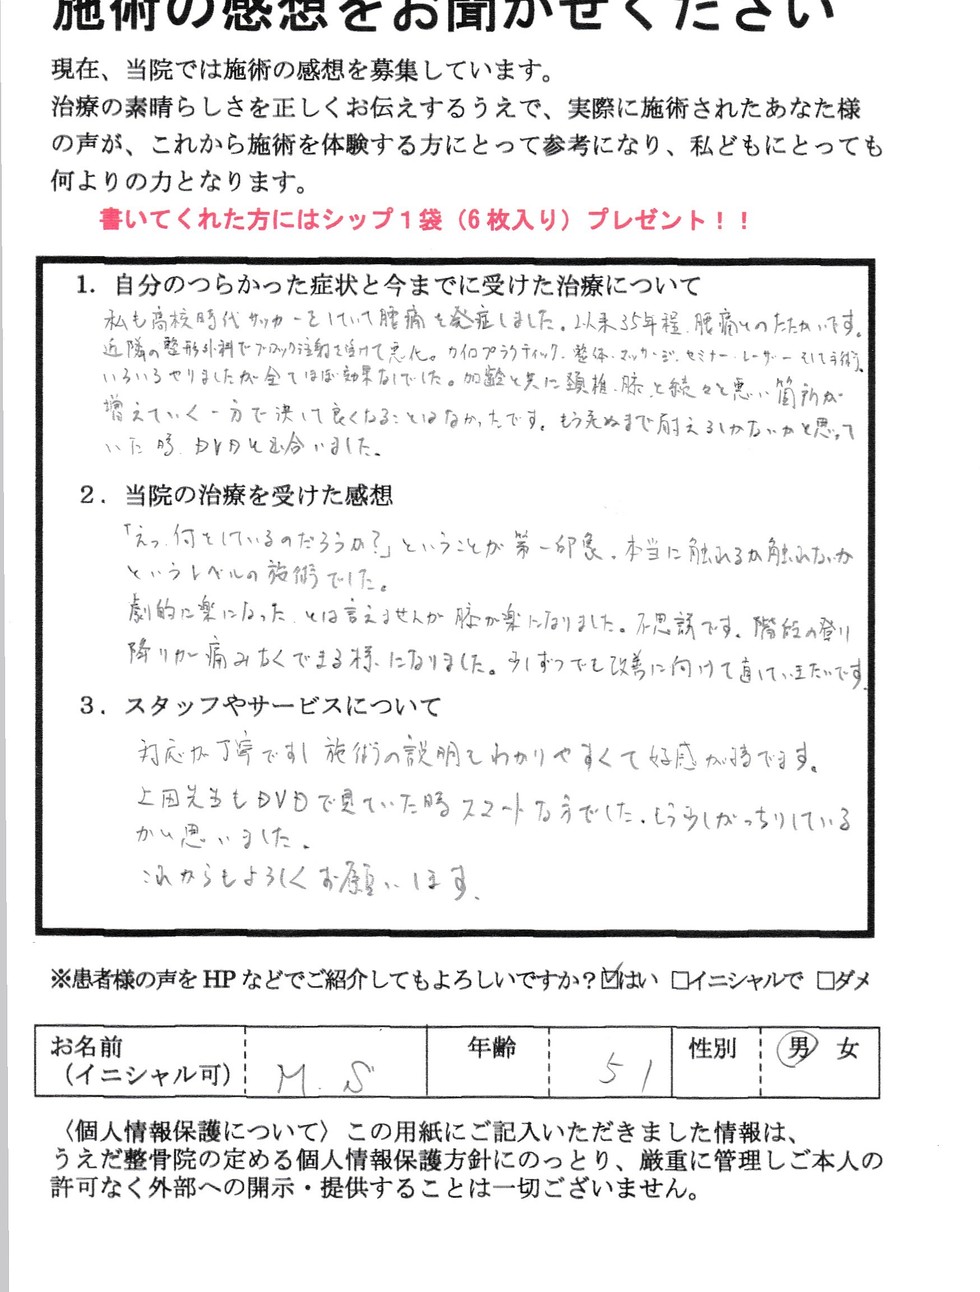 施術の感想をお聞かせください
現在、当院では施術の感想を募集しています。
治療の素晴らしさを正しくお伝えするうえで、実際に施術されたあなた様
の声が、これから施術を体験する方にとって参考になり、私どもにとっても
何よりの力となります。
書いてくれた方にはシップ１袋（6 枚入り）プレゼント！！
1. 自分のつらかった症状と今までに受けた治療について
私も高校時代サッカーをしていて腰痛を発症しました。以来35年程、腰痛とのたたかいです。
近隣の整形外科でブロック注射を受けて悪化。カイロプラクティック、整体、マッサージ、セミナー、レーザー そして手術、
いろいろやりましたが全てほぼ効果なしでした。加齢と共に頚椎、膝、と続々と悪い箇所が
増えていく一方で決して良くなることはなかったです。もう死ぬまで耐えるしかないかと思って
いた時、DVDと出合いました。
２．当院の治療を受けた感想
「えっ、何をしているのだろうか？」ということが第一印象。本当に触れるか触れないか
というレベルの施術でした。
劇的に楽になった、とは言えませんが膝が楽になりました。不思議です。階段の登り
降りが痛みなくできる様になりました。少しずつでも改善に向けて直していきたいです
３．スタッフやサービスについて
対応が丁寧ですし施術の説明もわかりやすくて好感が持てます。
上田先生もDVDで見ていた時スマートな方でした。もう少しがっちりしている
かと思いました。
これからもよろしくお願いします。
※患者様の声を HP などでご紹介してもよろしいですか？☑はい □イニシャルで □ダメ
お名前 年齢 性別 男 女
（イニシャル可） M.S 51
〈個人情報保護について〉この用紙にご記入いただきました情報は、
うえだ整骨院の定める個人情報保護方針にのっとり、厳重に管理しご本人の
許可なく外部への開示・提供することは一切ございません。